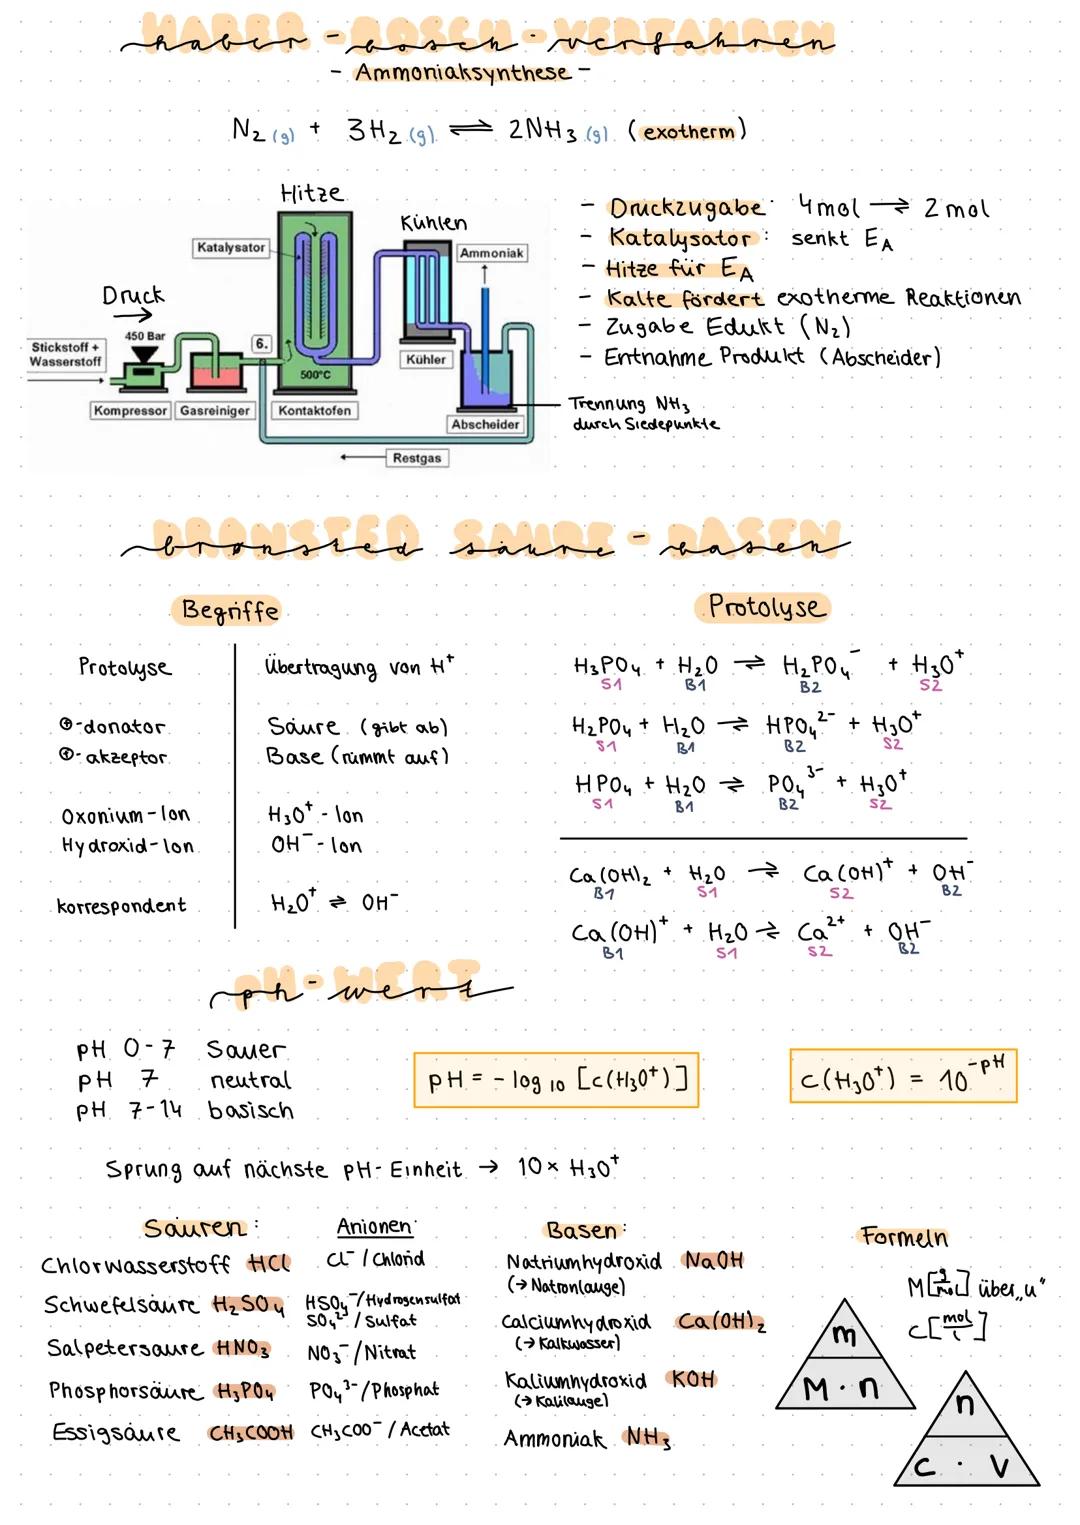 HABER-BOSCH-VERFAHREN
haber-bosch-verfahren
- Ammoniaksynthese -
N₂ (g) + 3H₂ (g) ⇌ 2NH₃ (g) (exotherm)
Hitze
Kühlen
Katalysator
Ammoniak
Druck
→
450 Bar
Stickstoff +
Wasserstoff
6.
500°C
Kühler
Kompressor
Gasreiniger
Kontaktofen
Abscheider
Restgas
- Druckzugabe: 4mol ⇌ 2 mol
- Katalysator: senkt E_A
- Hitze für E_A
- Kälte fördert exotherme Reaktionen
- Zugabe Edukt (N₂)
- Entnahme Produkt (Abscheider)
Trennung NH₃
durch Siedepunkte
BRØNSTED SÄURE-BASEN
brønsted säure-basen
Begriffe
Protolyse Übertragung von H⁺
⊕-donator Säure (gibt ab)
⊕-akzeptor Base (nimmt auf)
Oxonium-Ion H₃O⁺-Ion
Hydroxid-Ion OH⁻-Ion
korrespondent H₂O⁺ ⇌ OH⁻
Protolyse
H₃PO₄ + H₂O ⇌ H₂PO₄⁻ + H₃O⁺
S1 B1 B2 S2
H₂PO₄ + H₂O ⇌ HPO₄²⁻ + H₃O⁺
S1 B1 B2 S2
HPO₄ + H₂O ⇌ PO₄³⁻ + H₃O⁺
S1 B1 B2 S2
Ca(OH)₂ + H₂O ⇌ Ca(OH)⁺ + OH⁻
B1 S1 S2 B2
Ca(OH)⁺ + H₂O ⇌ Ca²⁺ + OH⁻
B1 S1 S2 B2
PH-WERT
ph-wert
pH 0-7 Sauer
pH 7 neutral
pH 7-14 basisch
pH = - log₁₀ [c(H₃O⁺)]
c(H₃O⁺) = 10^-pH
Sprung auf nächste pH-Einheit → 10× H₃O⁺
Säuren: Anionen:
Chlorwasserstoff HCl Cl⁻/Chlorid
Schwefelsäure H₂SO₄ HSO₄⁻/Hydrogensulfat
SO₄²⁻/Sulfat
Salpetersäure HNO₃ NO₃⁻/Nitrat
Phosphorsäure H₃PO₄ PO₄³⁻/Phosphat
Essigsäure CH₃COOH CH₃COO⁻/Acetat
Basen:
Natriumhydroxid NaOH
(→ Natronlauge)
Calciumhydroxid Ca(OH)₂
(→ Kalkwasser)
Kaliumhydroxid KOH
(→ Kalilauge)
Ammoniak NH₃
Formeln
M[g/mol] über „u"
c[mol/L]
m
M · n
n
c · V